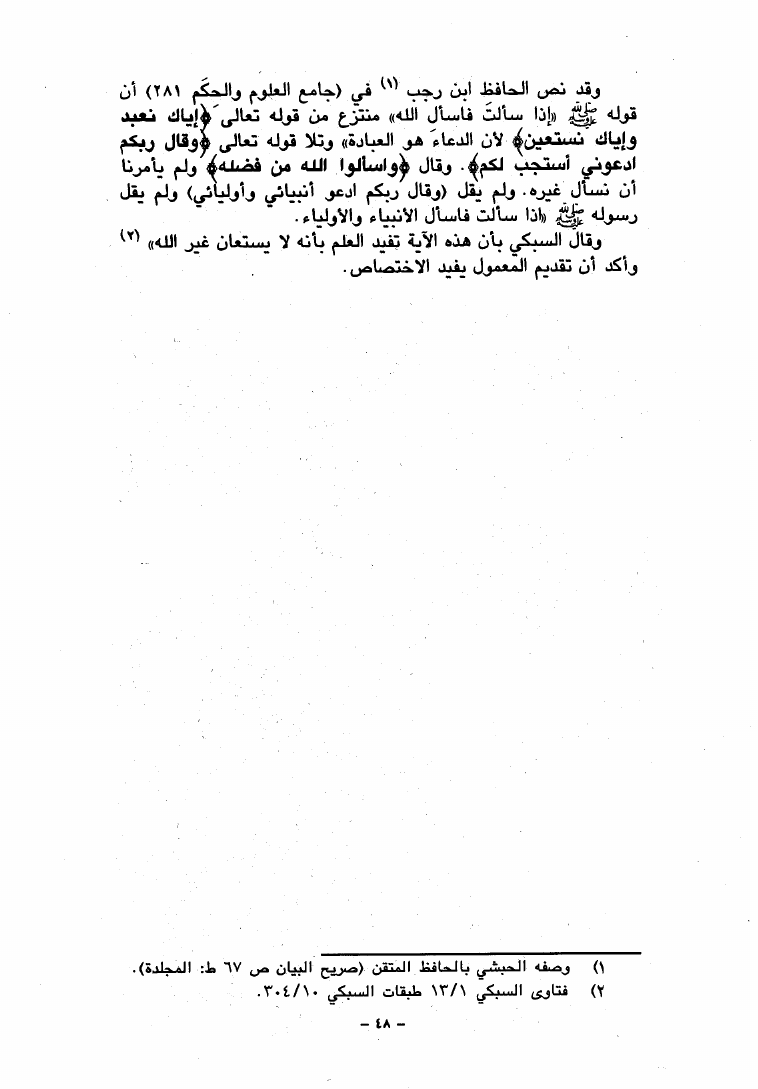 وقد نص الحافظ ابن رجب (١) في (جامع العلوم والحكَم ٢٨١) أن
قوله ﷺ «إذا سألتَ فاسأل الله» منتزع من قوله تعالى ﴿إياك نعبد
وإياك نستعين﴾ لأن الدعاءَ هو العبادة» وتلا قوله تعالى ﴿وقال ربكم
ادعوني أستجب لكم﴾. وقال ﴿واسألوا الله من فضله﴾ ولم يأمرنا
أن نسأل غيره. ولم يقل (وقال ربكم ادعو أنبيائي وأوليائي) ولم يقل
رسوله ﷺ «اذا سألت فاسأل الأنبياء والأولياء.
وقال السبكي بأن هذه الآية تفيد العلم بأنه لا يستعان غير الله» (٢)
وأكد أن تقديم المعمول يفيد الاختصاص.
١) وصفه الحبشي بالحافظ المتقن (صريح البيان ص ٦٧ ط: المجلدة).
٢) فتاوى السبكي ١٣/١ طبقات السبكي ٣٠٤/١٠.
– ٤٨ –